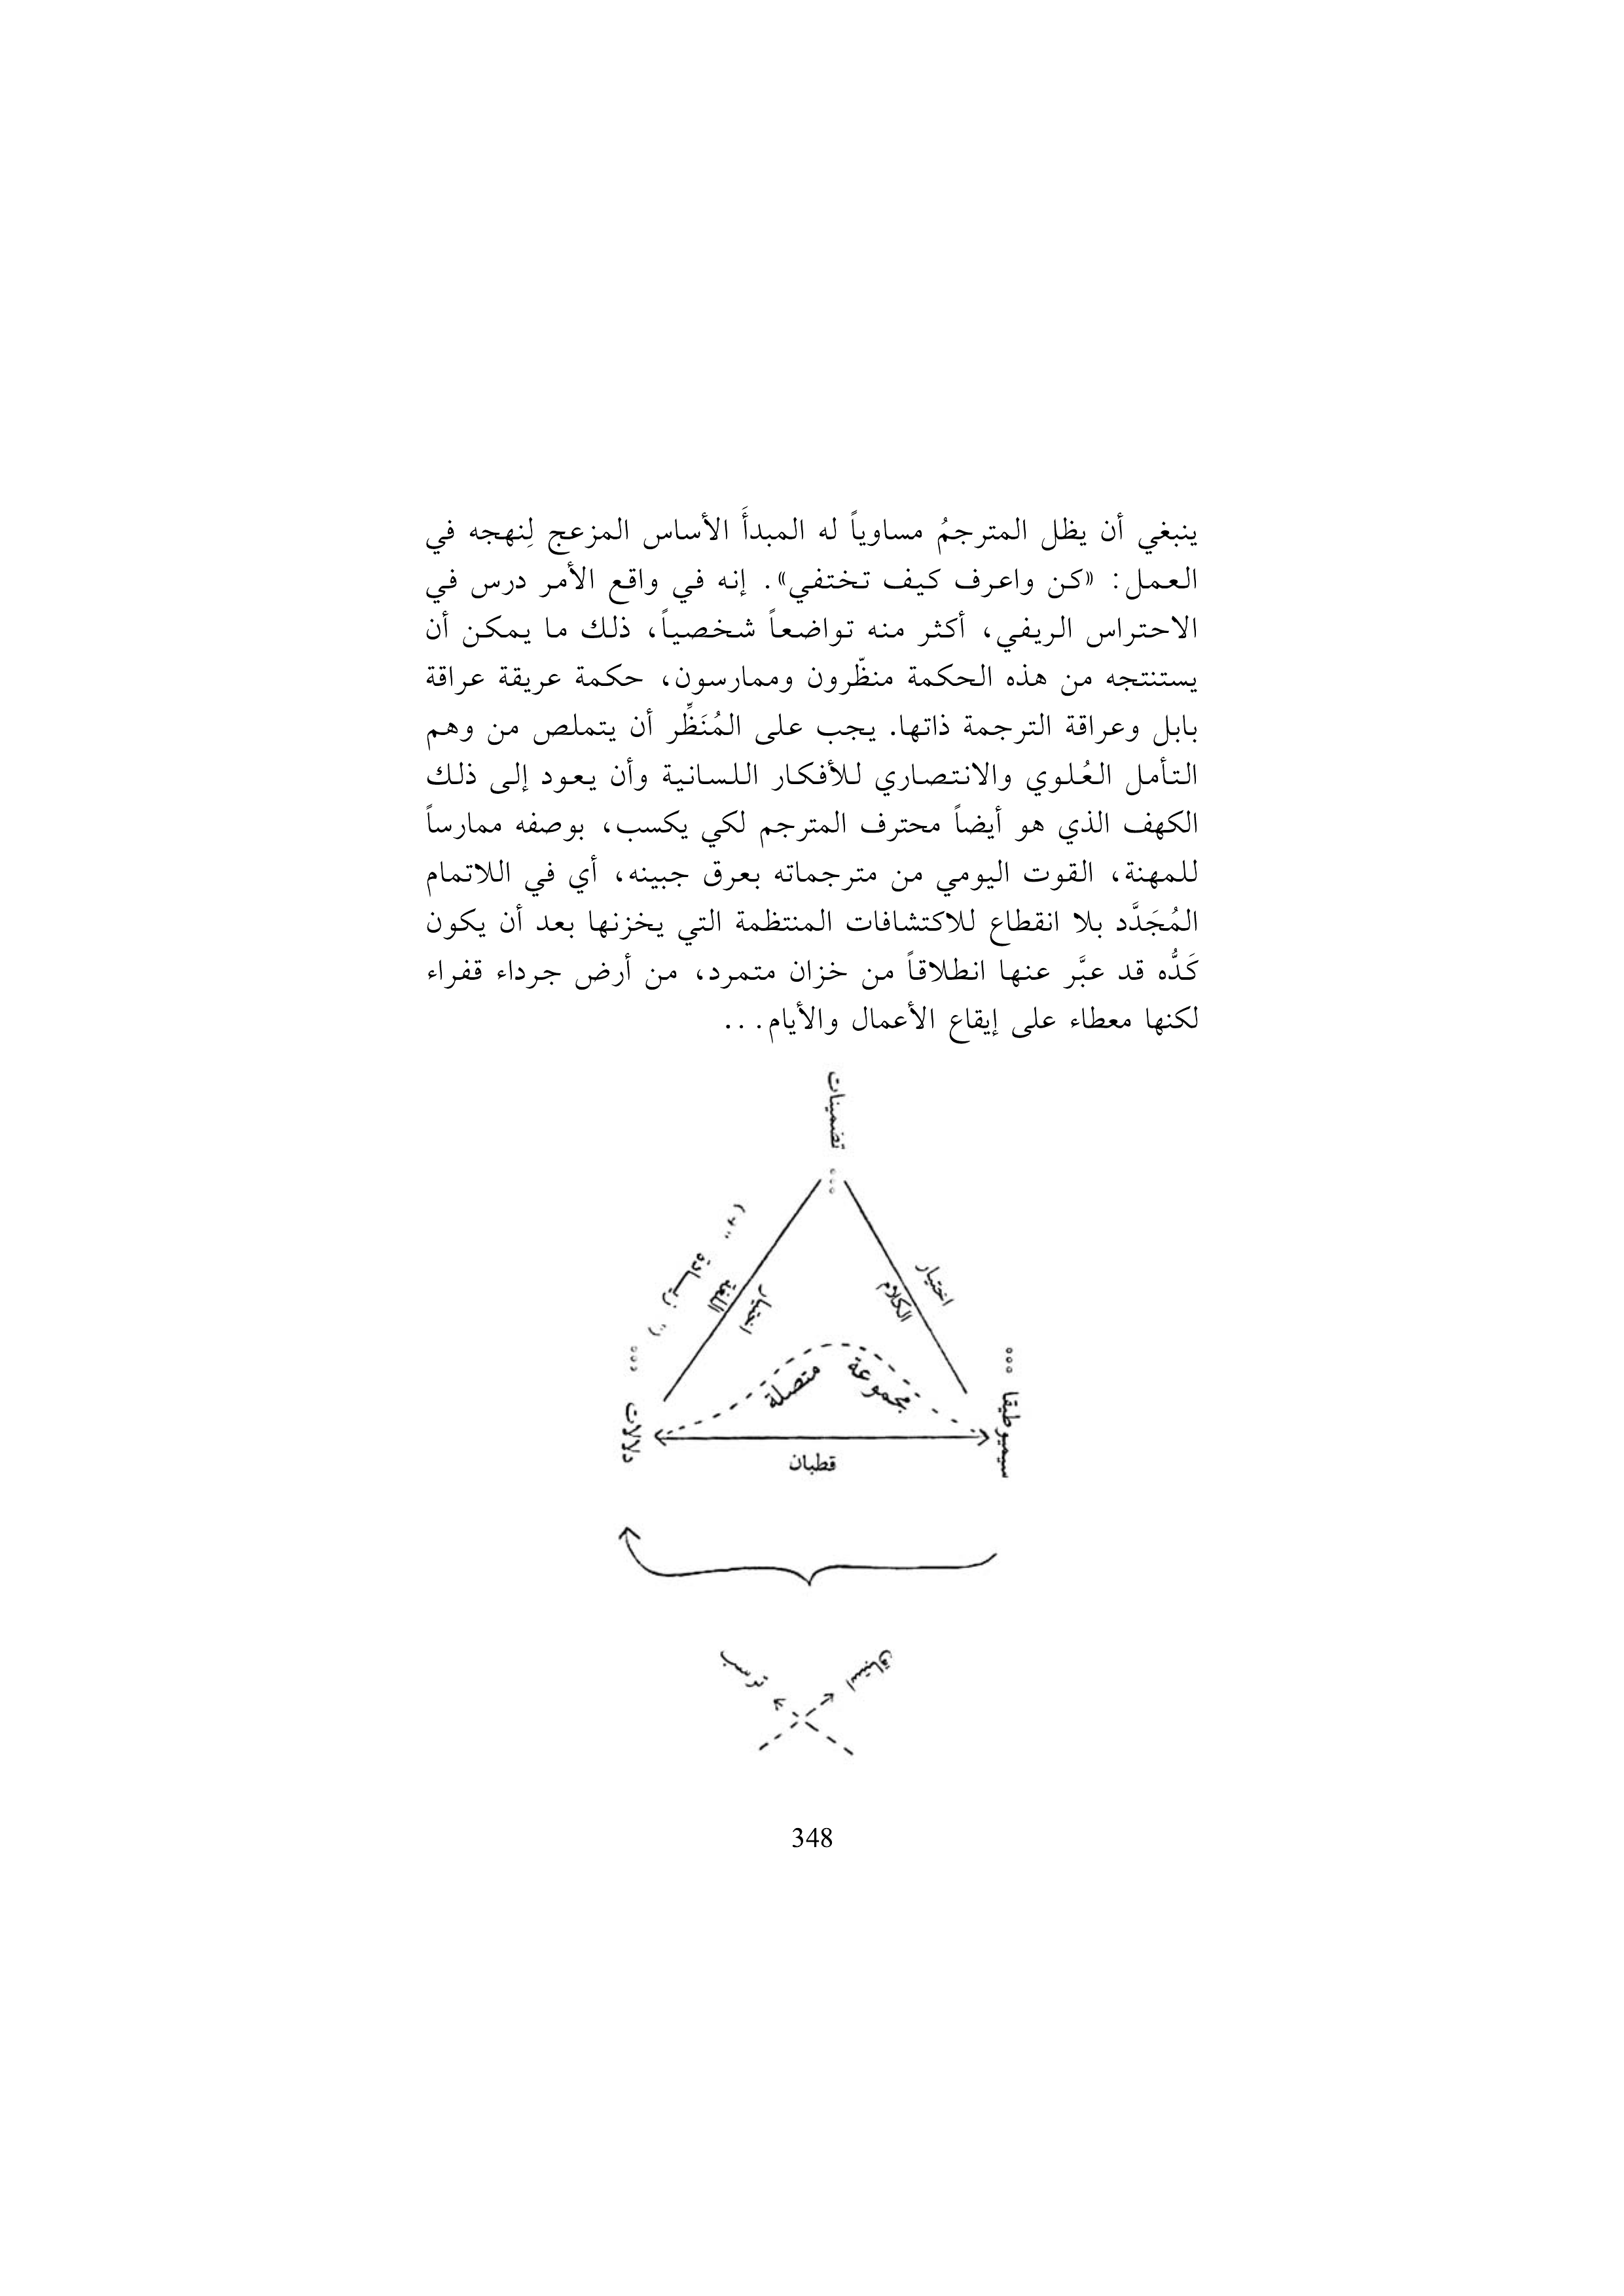 ينبغي أن يظل المترجمُ مساوياً له المبدأَ الأساس المزعج لِنهجه في
العمل: «كن واعرف كيف تختفي». إنه في واقع الأمر درس في
الاحتراس الريفي، أكثر منه تواضعاً شخصياً، ذلك ما يمكن أن
يستنتجه من هذه الحكمة منظّرون وممارسون، حكمة عريقة عراقة
بابل وعراقة الترجمة ذاتها. يجب على المُنَظِّر أن يتملص من وهم
التأمل العُلوي والانتصاري للأفكار اللسانية وأن يعود إلى ذلك
الكهف الذي هو أيضاً محترف المترجم لكي يكسب، بوصفه ممارساً
للمهنة، القوت اليومي من مترجماته بعرق جبينه، أي في اللاتمام
المُجَدَّد بلا انقطاع للاكتشافات المنتظمة التي يخزنها بعد أن يكون
كَدُّه قد عبَّر عنها انطلاقاً من خزان متمرد، من أرض جرداء قفراء
لكنها معطاء على إيقاع الأعمال والأيام...
تضمينات
زيادة
اختيار
اللغة
اختيار
الكلام
مجموعة
متصلة
سيميوطيقا
دلالات
قطبان
استباق
ترسب
348